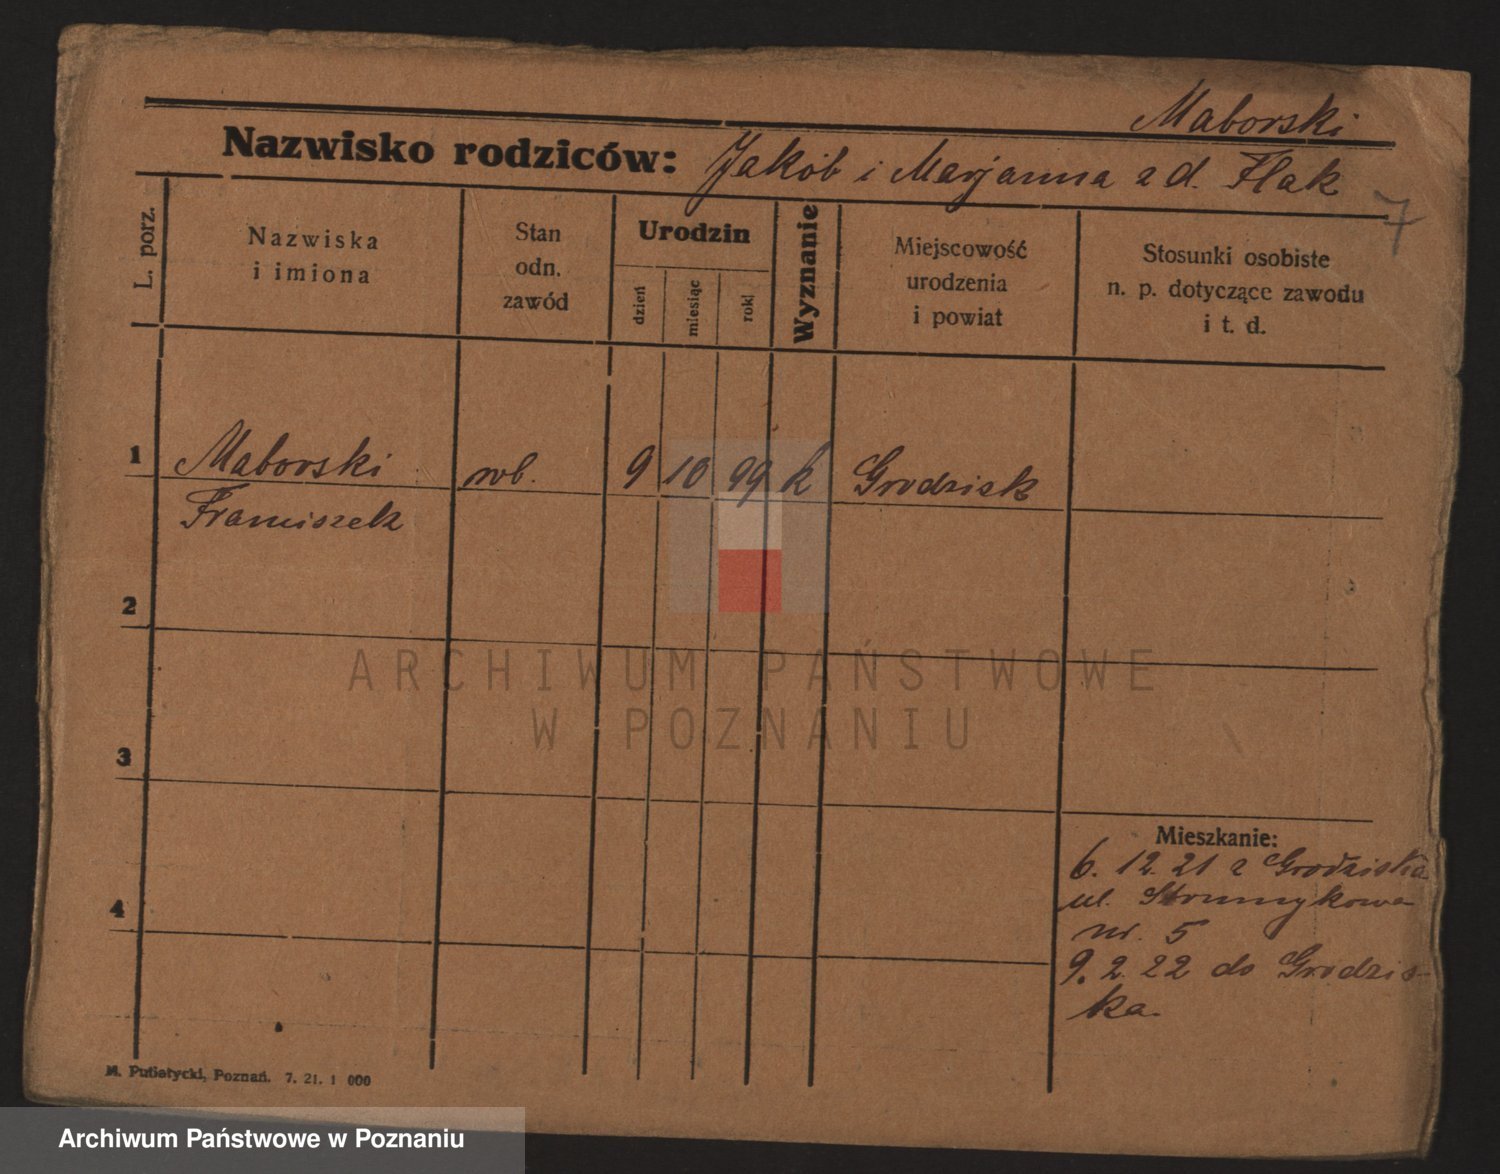 Maborski
Nazwisko rodziców: Jakób i Marjanna z d. Flak
7
L. porz.
Nazwiska
i imiona
Stan
odn.
zawód
Urodzin
dzień
miesiąc
rok
Wyznanie
Miejscowość
urodzenia
i powiat
Stosunki osobiste
n. p. dotyczące zawodu
i t. d.
1 Maborski rob. 9 10 99 k Grodzisk
Franciszek
2
3
4
Mieszkanie:
6. 12. 21 z Grodziska
ul. Strumykowa
nr. 5
9. 2. 22 do Grodzis-
ka.
M. Putiatycki, Poznań. 7. 21. 1 000
ARCHIWUM PAŃSTWOWE
W POZNANIU
Archiwum Państwowe w Poznaniu